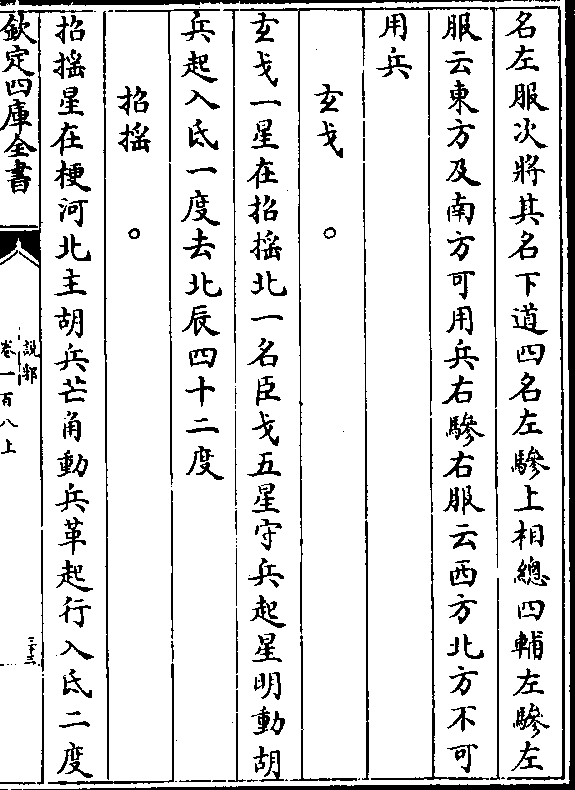 名左服次將其名下道四名左驂上相總四輔左驂左
服云東方及南方可用兵右驂右服云西方北方不可
用兵
玄戈
玄戈一星在招搖北一名臣戈五星守兵起星明動胡
兵起入氐一度去北辰四十二度
招搖
招搖星在梗河北主胡兵芒角動兵革起行入氐二度
欽定四庫全書
說郛
卷一百八上
三十三